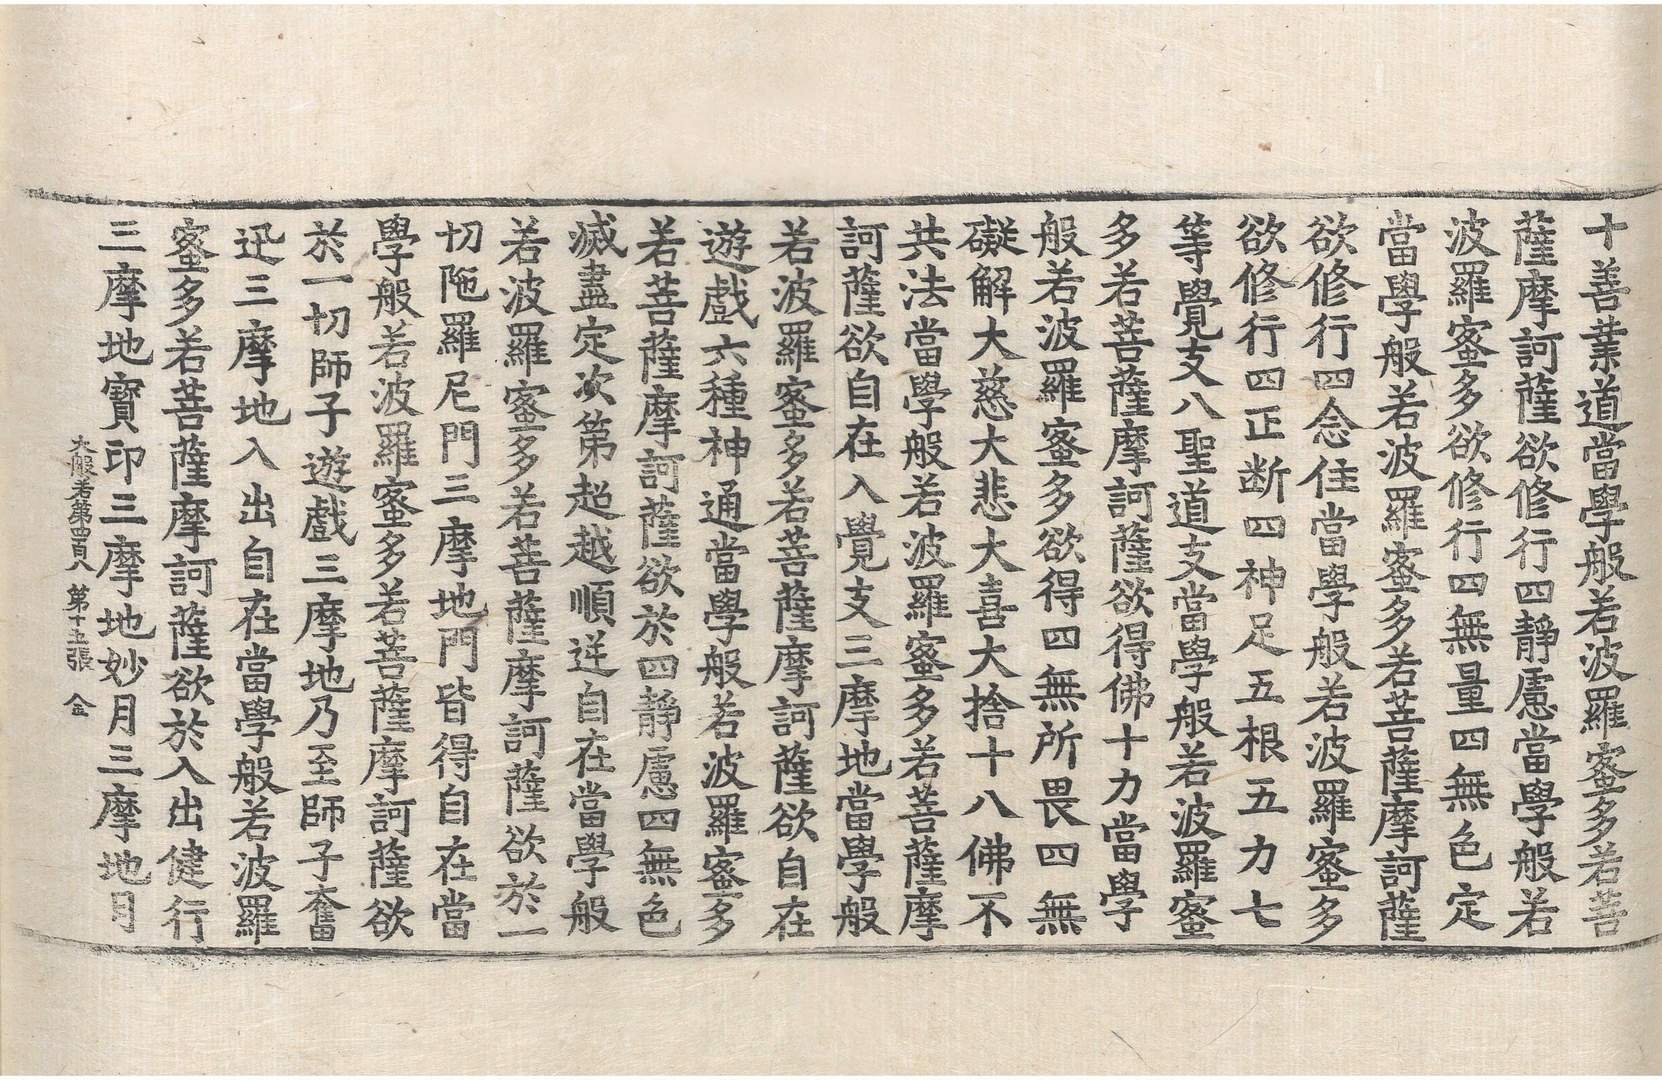 十善業道當學般若波羅蜜多若菩
薩摩訶薩欲修行四靜慮當學般若
波羅蜜多欲修行四無量四無色定
當學般若波羅蜜多若菩薩摩訶薩
欲修行四念住當學般若波羅蜜多
欲修行四正断四神足五根五力七
等覺支八聖道支當學般若波羅蜜
多若菩薩摩訶薩欲得佛十力當學
般若波羅蜜多欲得四無所畏四無
礙解大慈大悲大喜大捨十八佛不
共法當學般若波羅蜜多若菩薩摩
訶薩欲自在入覺支三摩地當學般
若波羅蜜多若菩薩摩訶薩欲自在
遊戲六種神通當學般若波羅蜜多
若菩薩摩訶薩欲於四靜慮四無色
滅盡定次第超越順逆自在當學般
若波羅蜜多若菩薩摩訶薩欲於一
切陁羅尼門三摩地門皆得自在當
學般若波羅蜜多若菩薩摩訶薩欲
於一切師子遊戲三摩地乃至師子奮
迅三摩地入出自在當學般若波羅
蜜多若菩薩摩訶薩欲於入出健行
三摩地寶印三摩地妙月三摩地月
大般若第四百八 第十五張 金